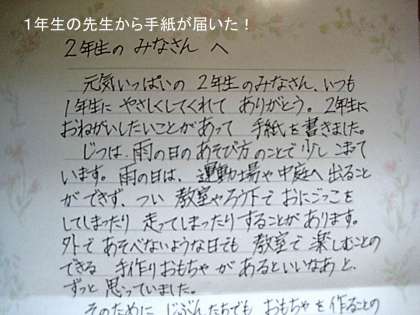 1年生の先生から手紙が届いた!
2年生の みなさん へ
元気いっぱいの 2年生のみなさん、いつも
1年生に やさしくしてくれて ありがとう。2年生に
おねがいしたいことが あって 手紙を書きました。
じつは、雨の日の あそび方のことで 少し こまって
います。雨の日は、運動場や中庭へ 出ること
ができず、つい 教室やろう下で おにごっこを
してしまったり 走ってしまったり することが あります。
外で あそべないような日でも 教室で 楽しむことの
できる 手作りおもちゃ があるといいなあ と、
ずっと 思っていました。
そのために じぶんたちでも おもちゃ を作ることの